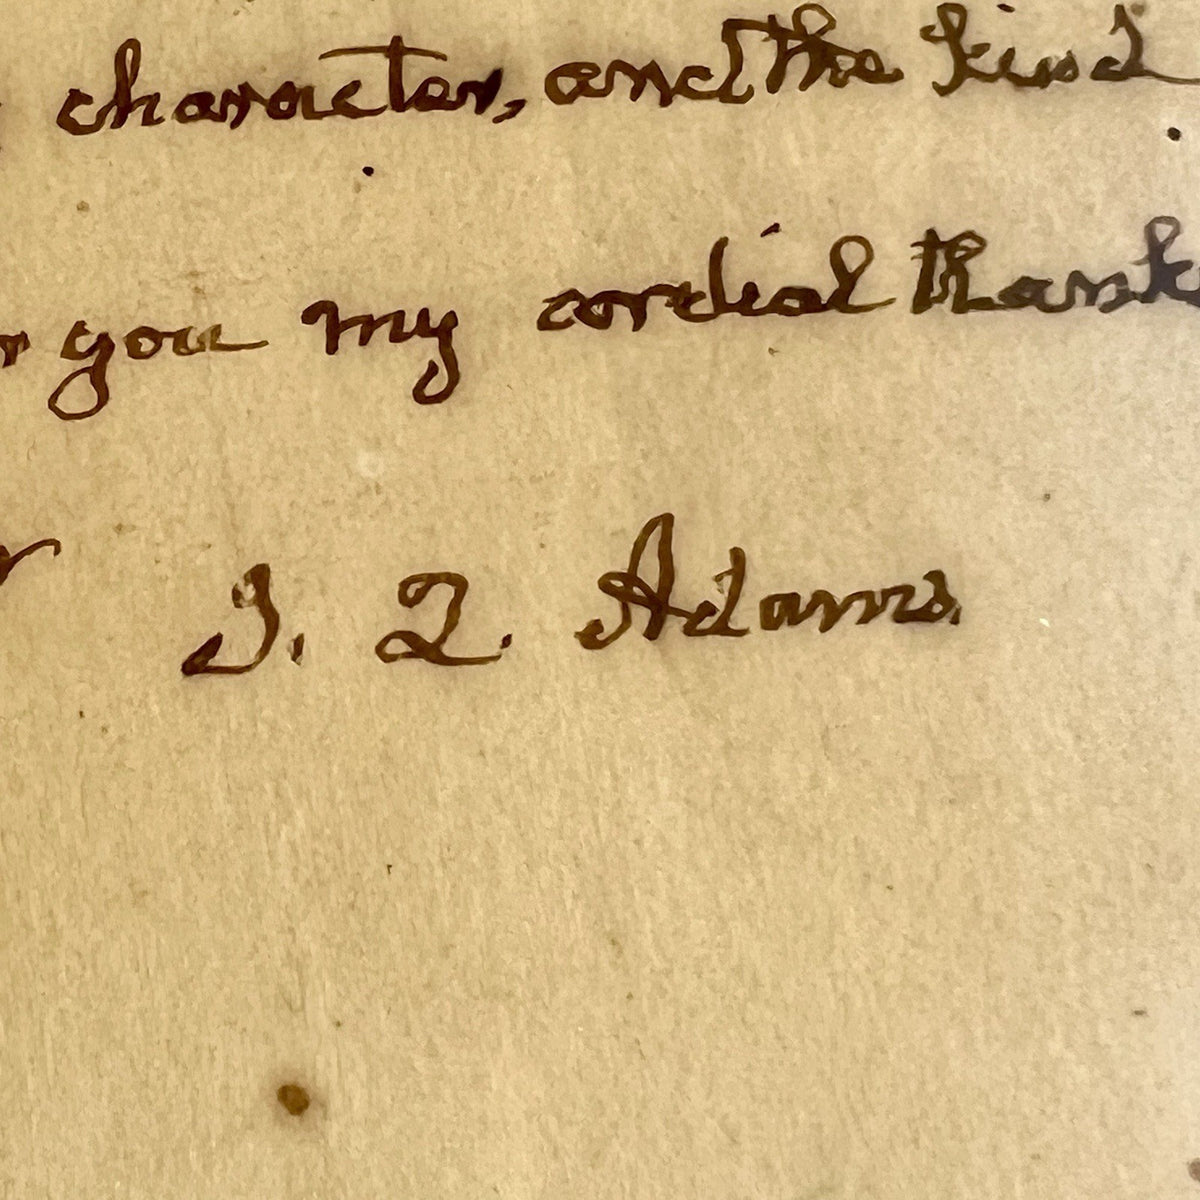 character, and the kind
you my cordial thank
J. Q. Adams.